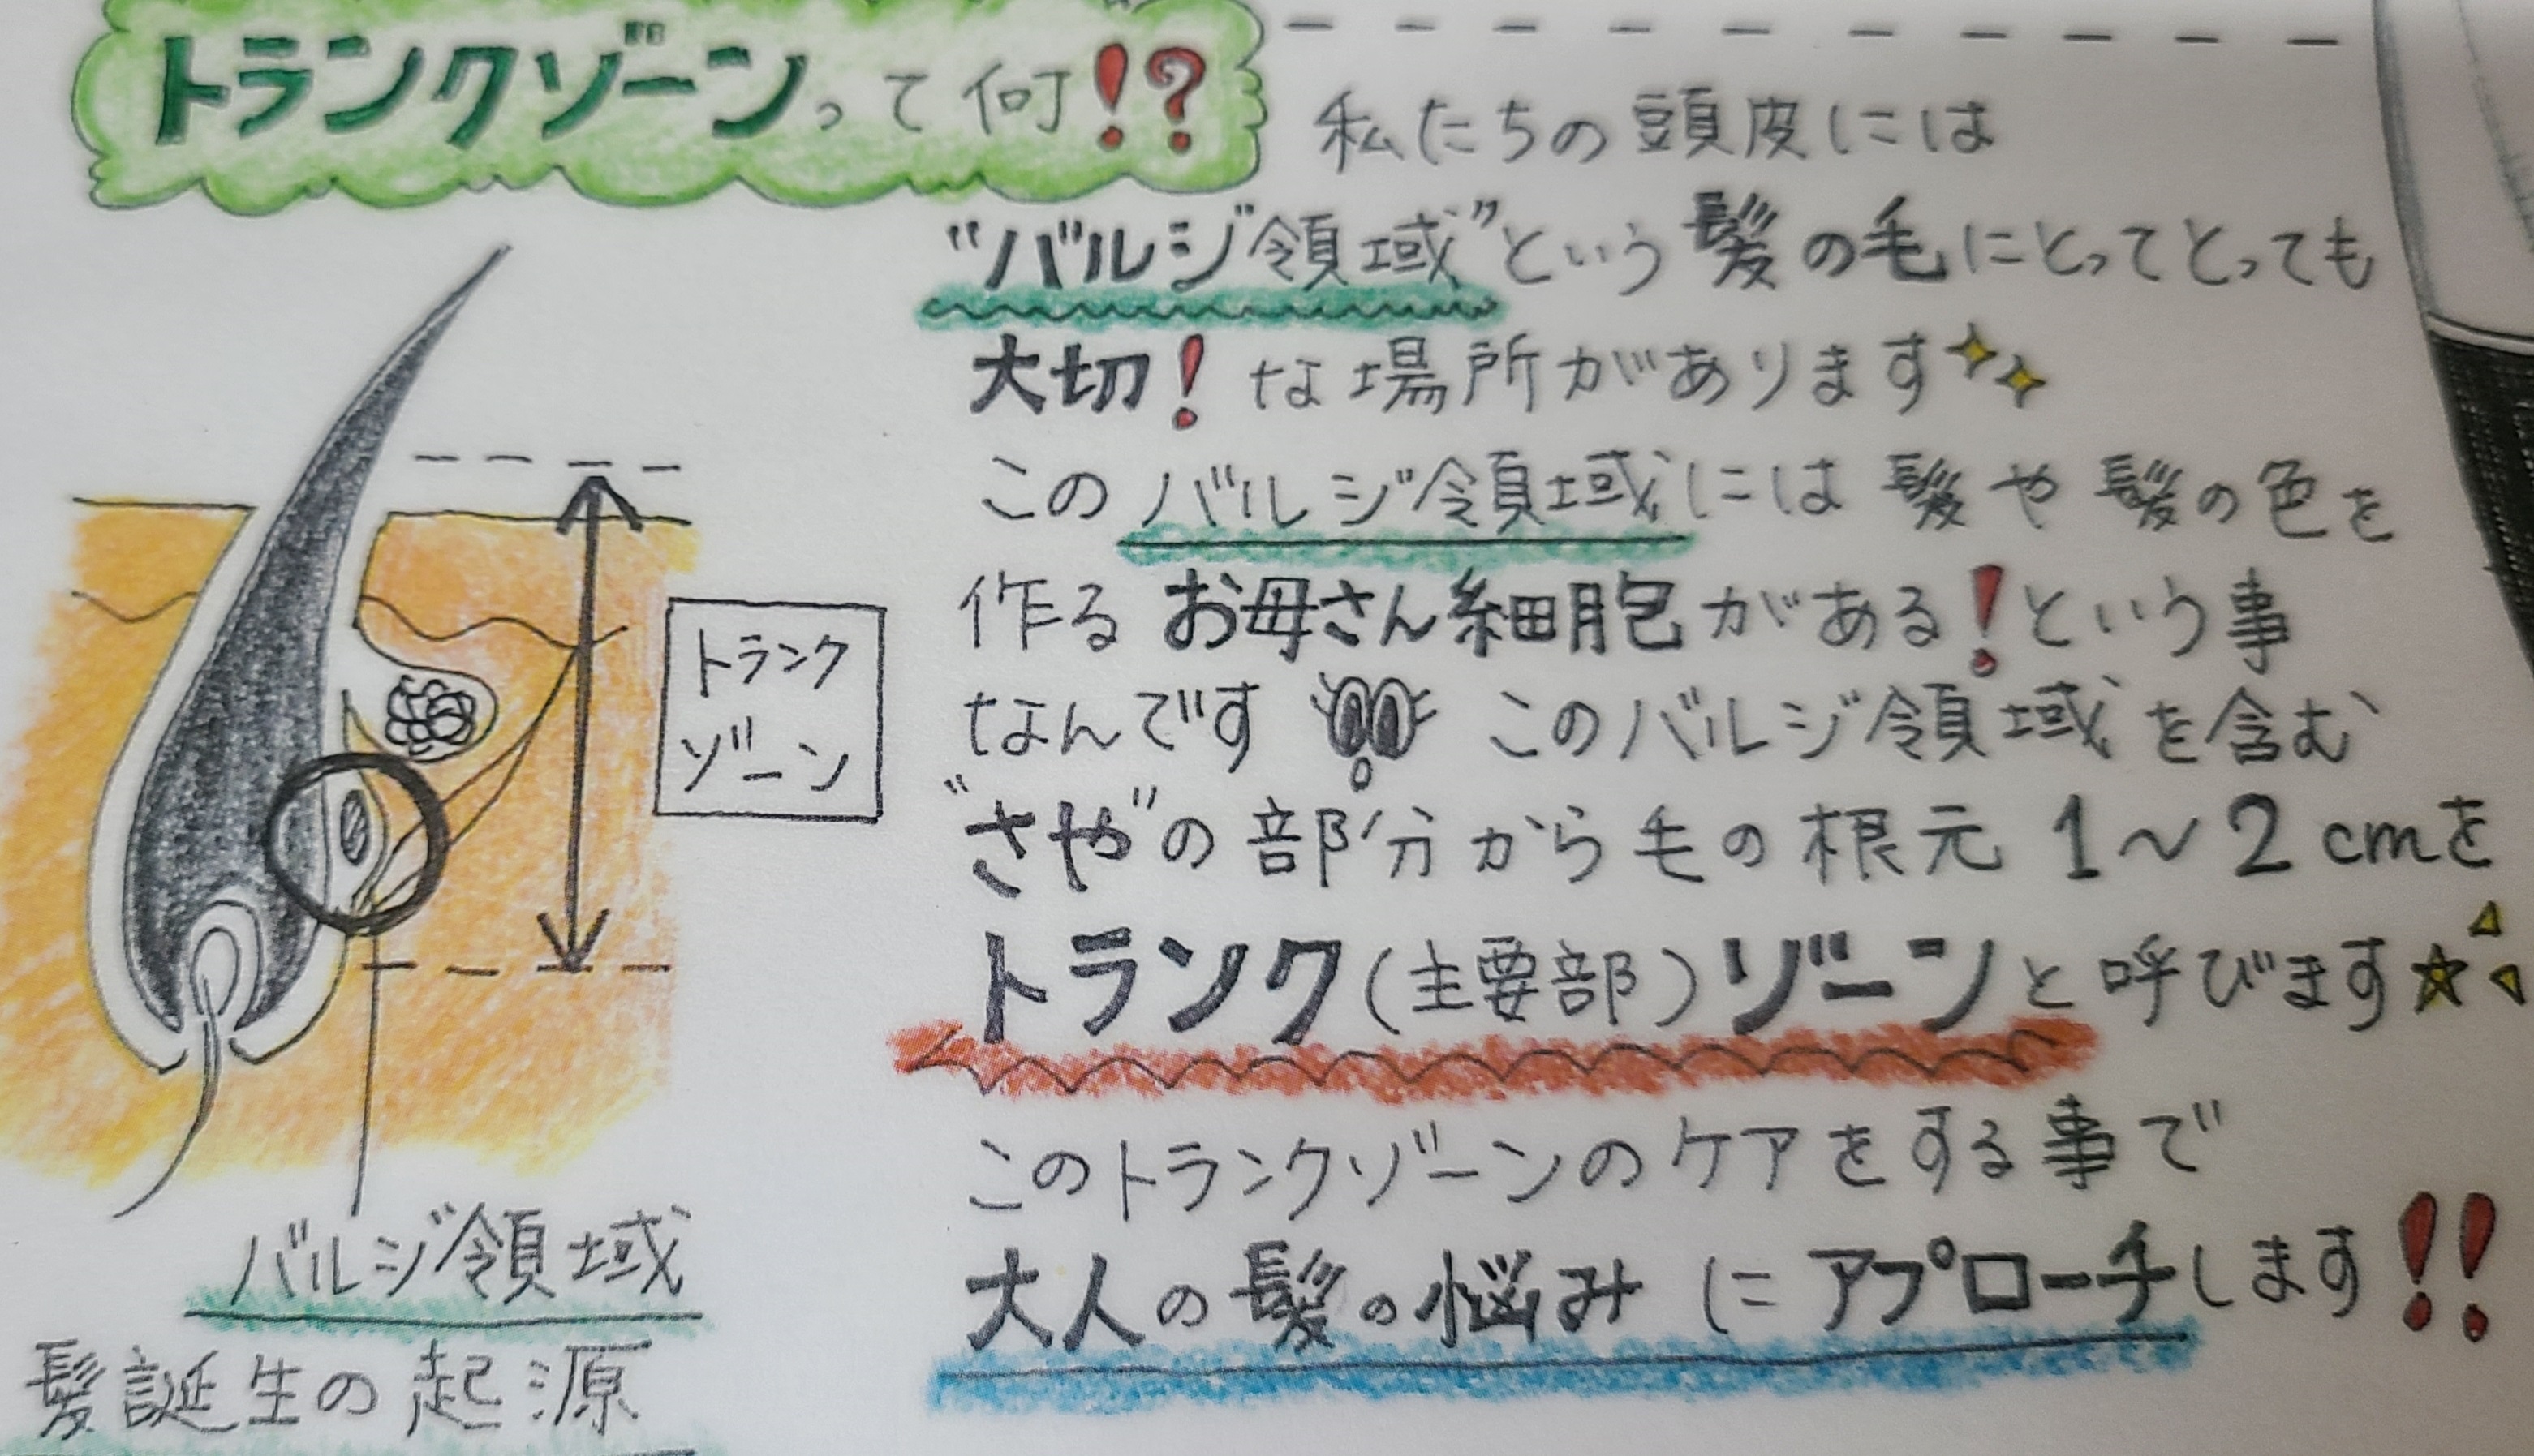 トランクゾーンって何!?
私たちの頭皮には
"バルジ領域"という髪の毛にとってとっても
大切!な場所があります
このバルジ領域には髪や髪の色を
作るお母さん細胞がある!という事
なんです このバルジ領域を含む
"さや"の部分から毛の根元1〜2cmを
トランク(主要部)ゾーンと呼びます☆
このトランクゾーンのケアをする事で
大人の髪の悩みにアプローチします!!
トランク
ゾーン
バルジ領域
髪誕生の起源